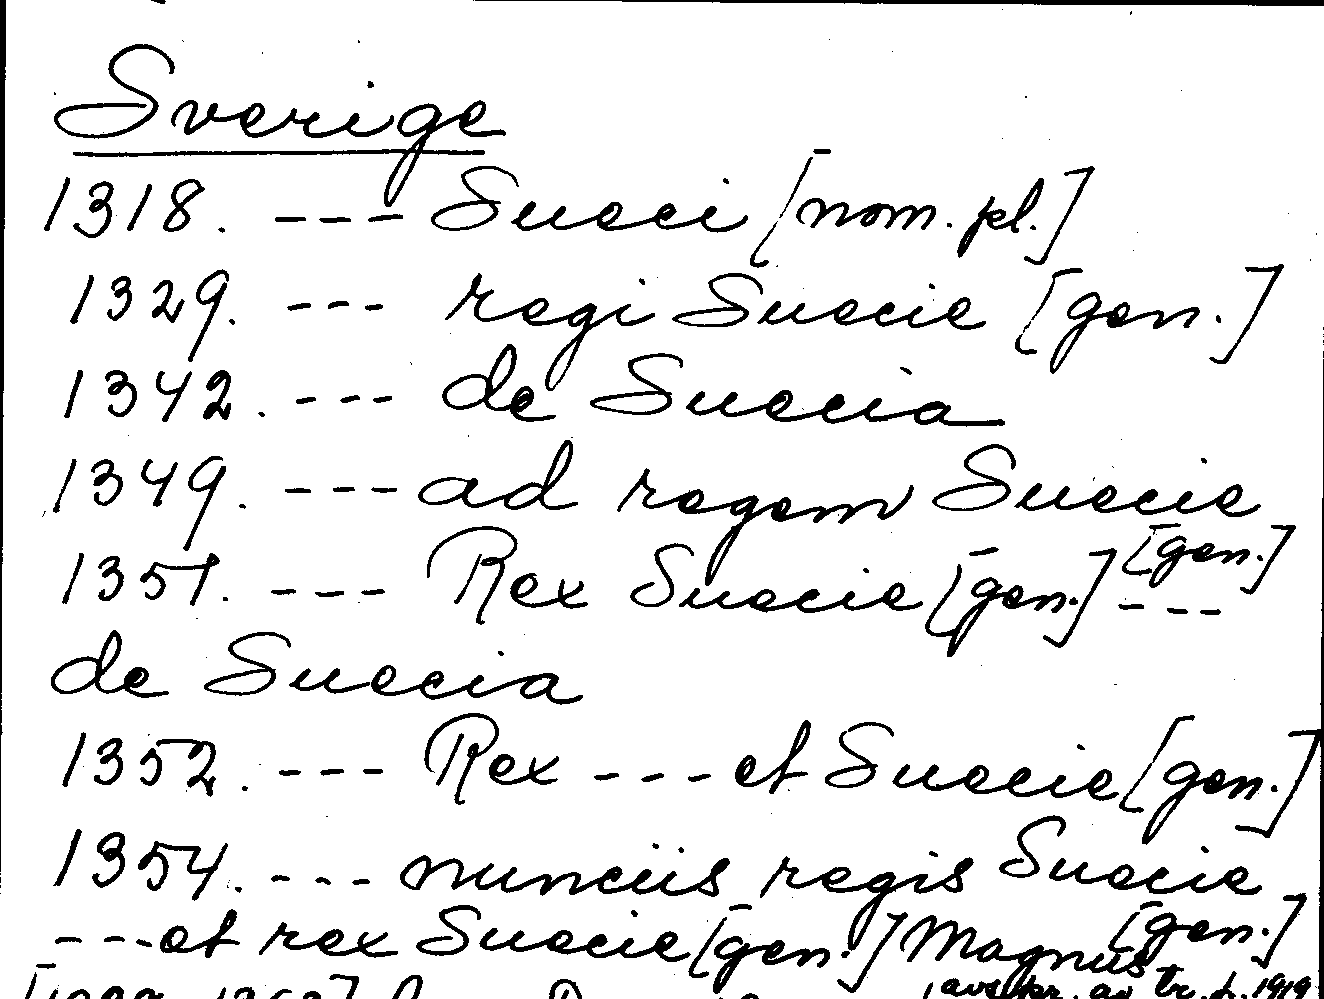 Sverige
1318. --- Sueci [nom. pl.]
1329. --- regi Suecie [gen.]
1342. --- de Suecia
1349. --- ad regem Suecie [gen.]
1351. --- Rex Suecie [gen.] ---
de Suecia
1352. --- Rex --- et Suecie [gen.]
1354. --- nunciis regis Suecie [gen.]
--- et rex Suecie [gen.] Magnus
avskr. av tr. f. 1919